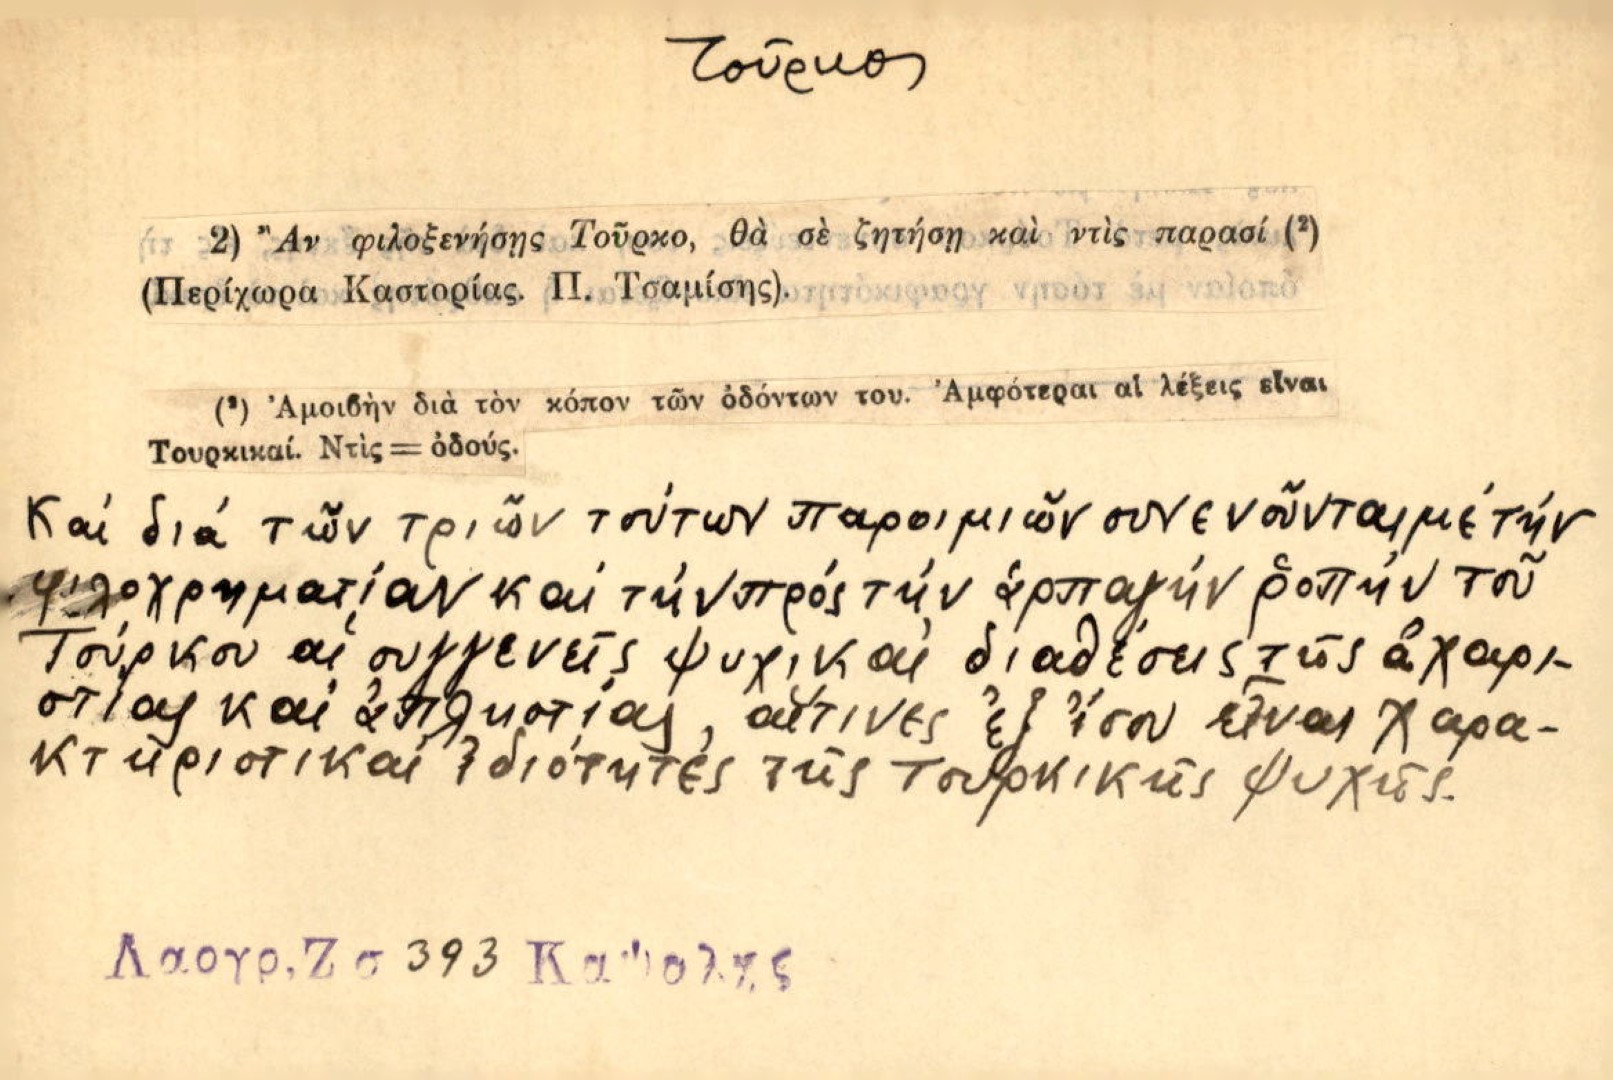 Τοῦρκος
2) Ἂν φιλοξενήσῃς Τοῦρκο, θὰ σὲ ζητήσῃ καὶ ντὶς παρασί (²)
(Περίχωρα Καστορίας. Π. Τσαμίσης).
(²) Ἀμοιβὴν διὰ τὸν κόπον τῶν ὀδόντων του. Ἀμφότεραι αἱ λέξεις εἶναι
Τουρκικαί. Ντὶς = ὀδούς.
Καί διά τῶν τριῶν τούτων παροιμιῶν συνενοῦνται μέ τήν
φιλοχρηματίαν καί τήν πρός τήν ἁρπαγήν ῥοπήν τοῦ
Τούρκου αἱ συγγενεῖς ψυχικαί διαθέσεις τῆς ἀχαρι-
στίας καί ἀπληστίας, αἵτινες ἐξ ἴσου εἶναι χαρα-
κτηριστικαί ἰδιότητες τῆς Τουρκικῆς ψυχῆς.
Λαογρ, Ζ σ 393